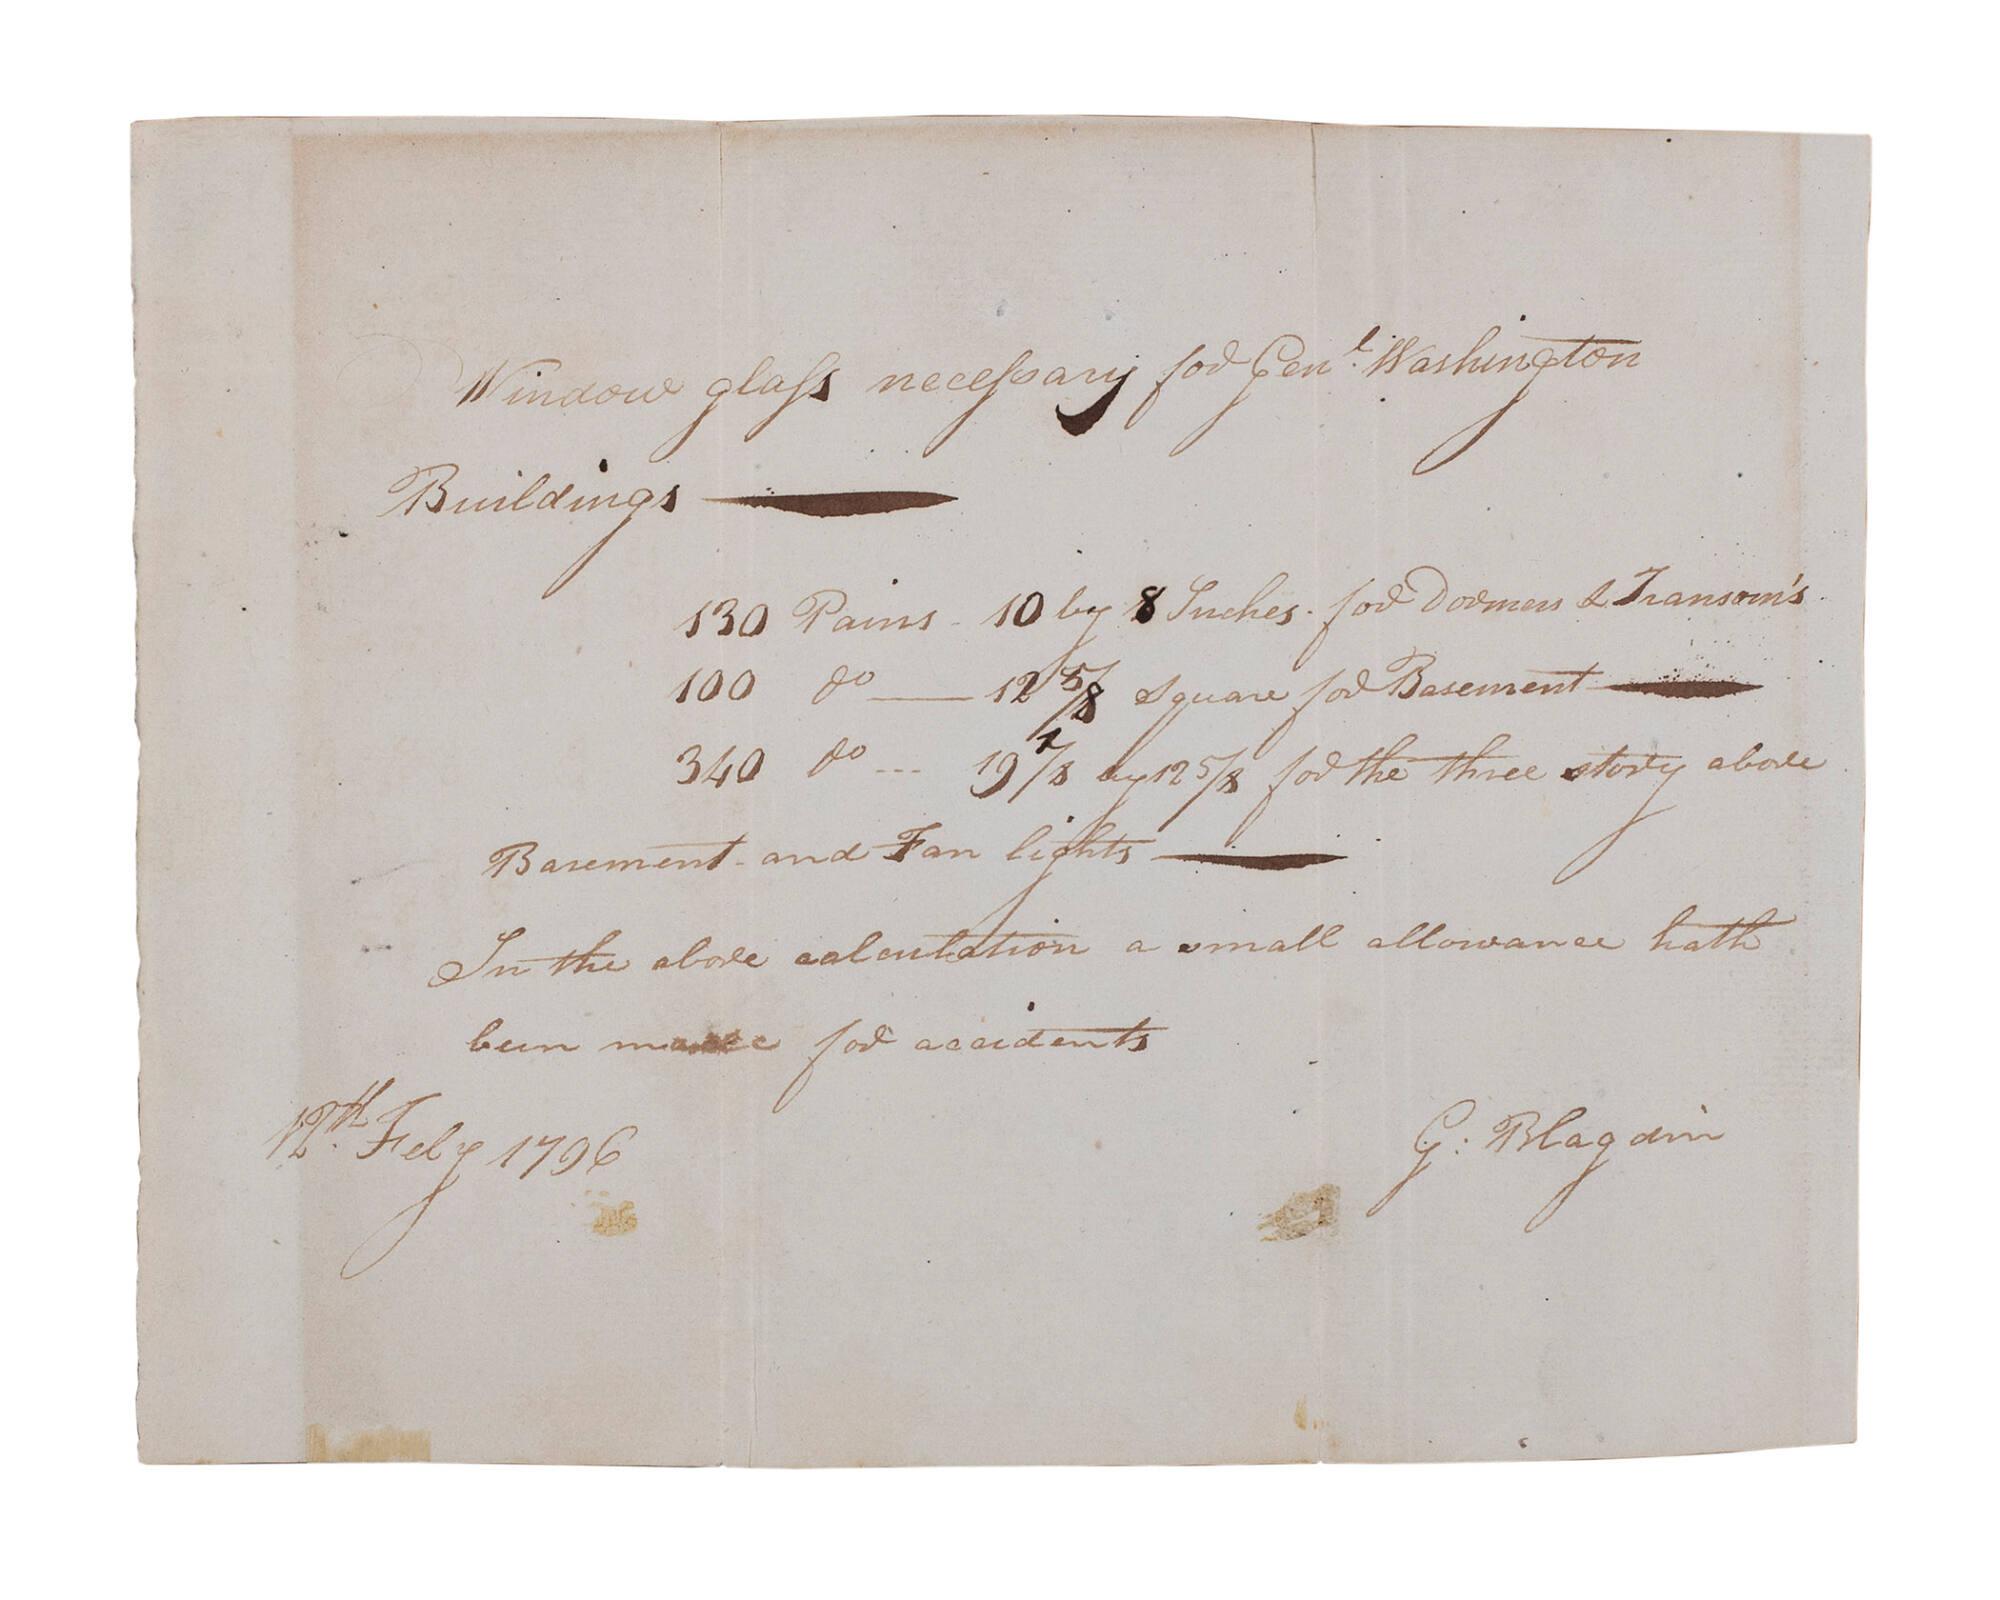 Window glass necessary for Genl. Washington
Buildings
130 Pains - 10 by 8 Inches - for Dormers & Transom's
100 do — 12 5/8 square for Basement
340 do --- 19 7/8 by 12 5/8 for the three story above
Basement - and Fan lights
In the above calculation a small allowance hath
been made for accidents
12th. Feby 1796
G: Blagdin